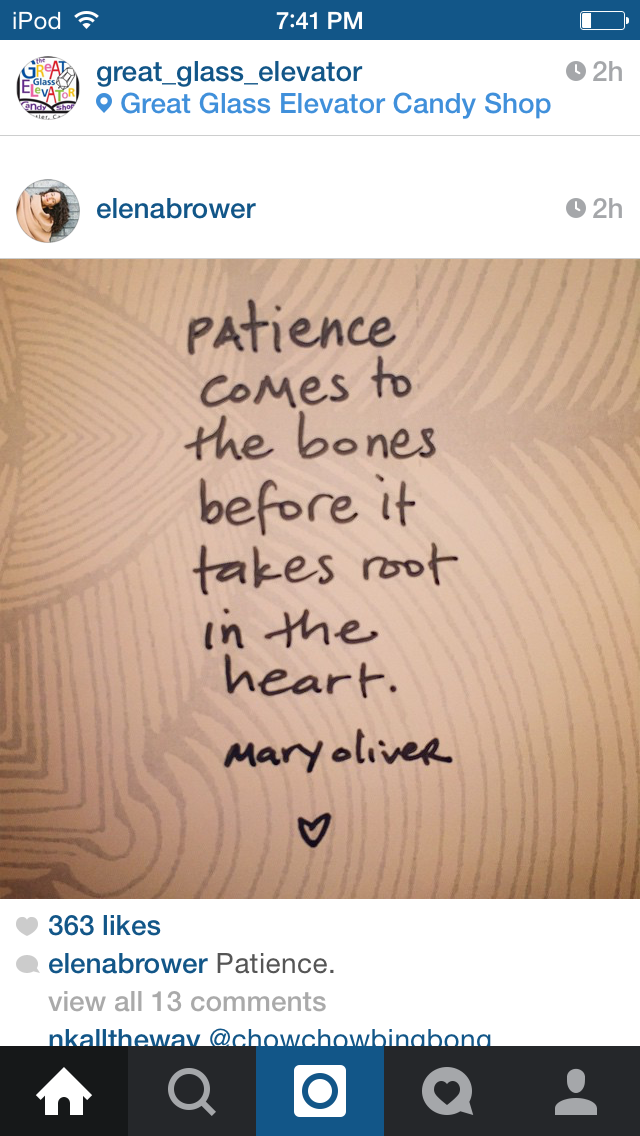 iPod 7:41 PM
great_glass_elevator 2h
Great Glass Elevator Candy Shop
the
GREAT
Glass
ELEVATOR
Candy Shop
elenabrower 2h
PAtience
comes to
the bones
before it
takes root
in the
heart.
Mary oliver
363 likes
elenabrower Patience.
view all 13 comments
nkalltheway @chowchowbingbong